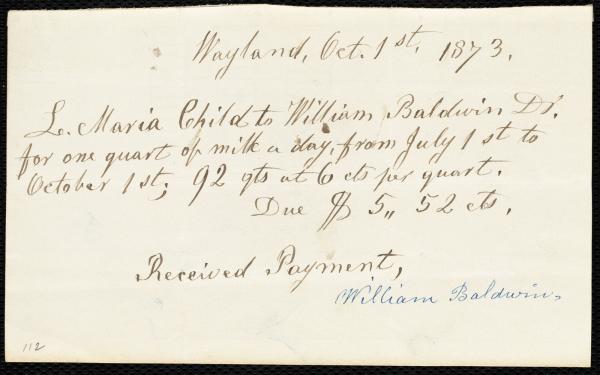 Wayland, Oct. 1st, 1873.
L. Maria Child to William Baldwin Dr.
for one quart of milk a day, from July 1st to
October 1st; 92 qts at 6 cts per quart.
Due $ 5,, 52 cts.
Received Payment,
William Baldwin.
112